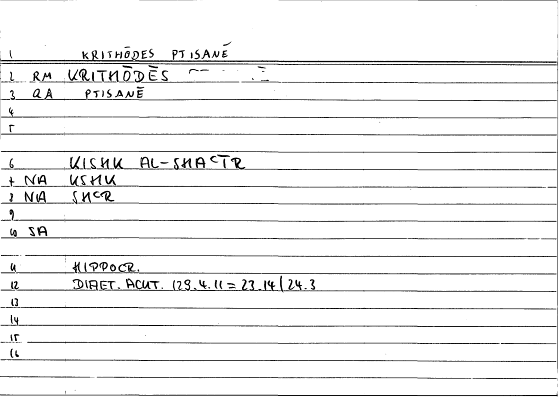 1 KRITHŌDĒS PTISANĒ
2 RM KRITHŌDĒS
3 QA PTISANĒ
4
5
6 KISHK AL-SHAʿĪR
7 NA KSHK
8 NA SHʿR
9
10 SA
11 HIPPOCR.
12 DIAET. ACUT. 129.4.11 = 23.14 / 24.3
13
14
15
16